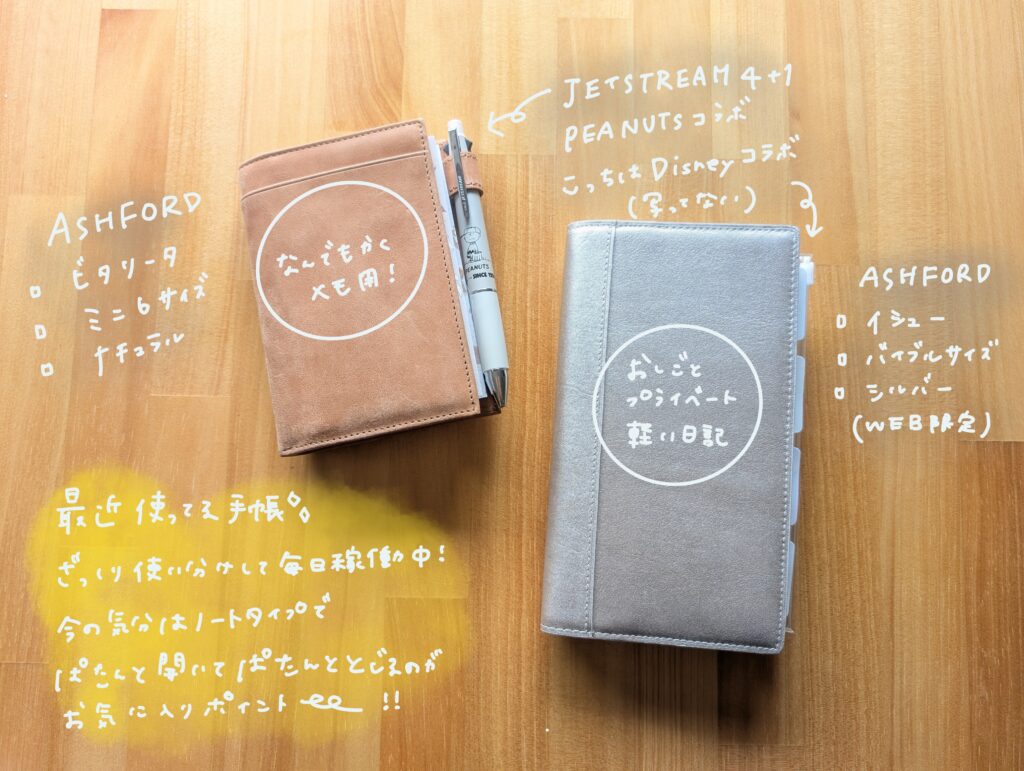 JETSTREAM 4+1
PEANUTSコラボ
こっちはDisneyコラボ
(写ってない)
ASHFORD
ビタリータ
ミニ6サイズ
ナチュラル
なんでもかく
メモ用!
PEANUTS
ASHFORD
イシュー
バイブルサイズ
シルバー
(WEB限定)
おしごと
プライベート
軽い日記
最近使ってる手帳
ざっくり使い分けして毎日稼働中!
今の気分はノートタイプで
ぱたんと開いてぱたんととじるのが
お気に入りポイント!!